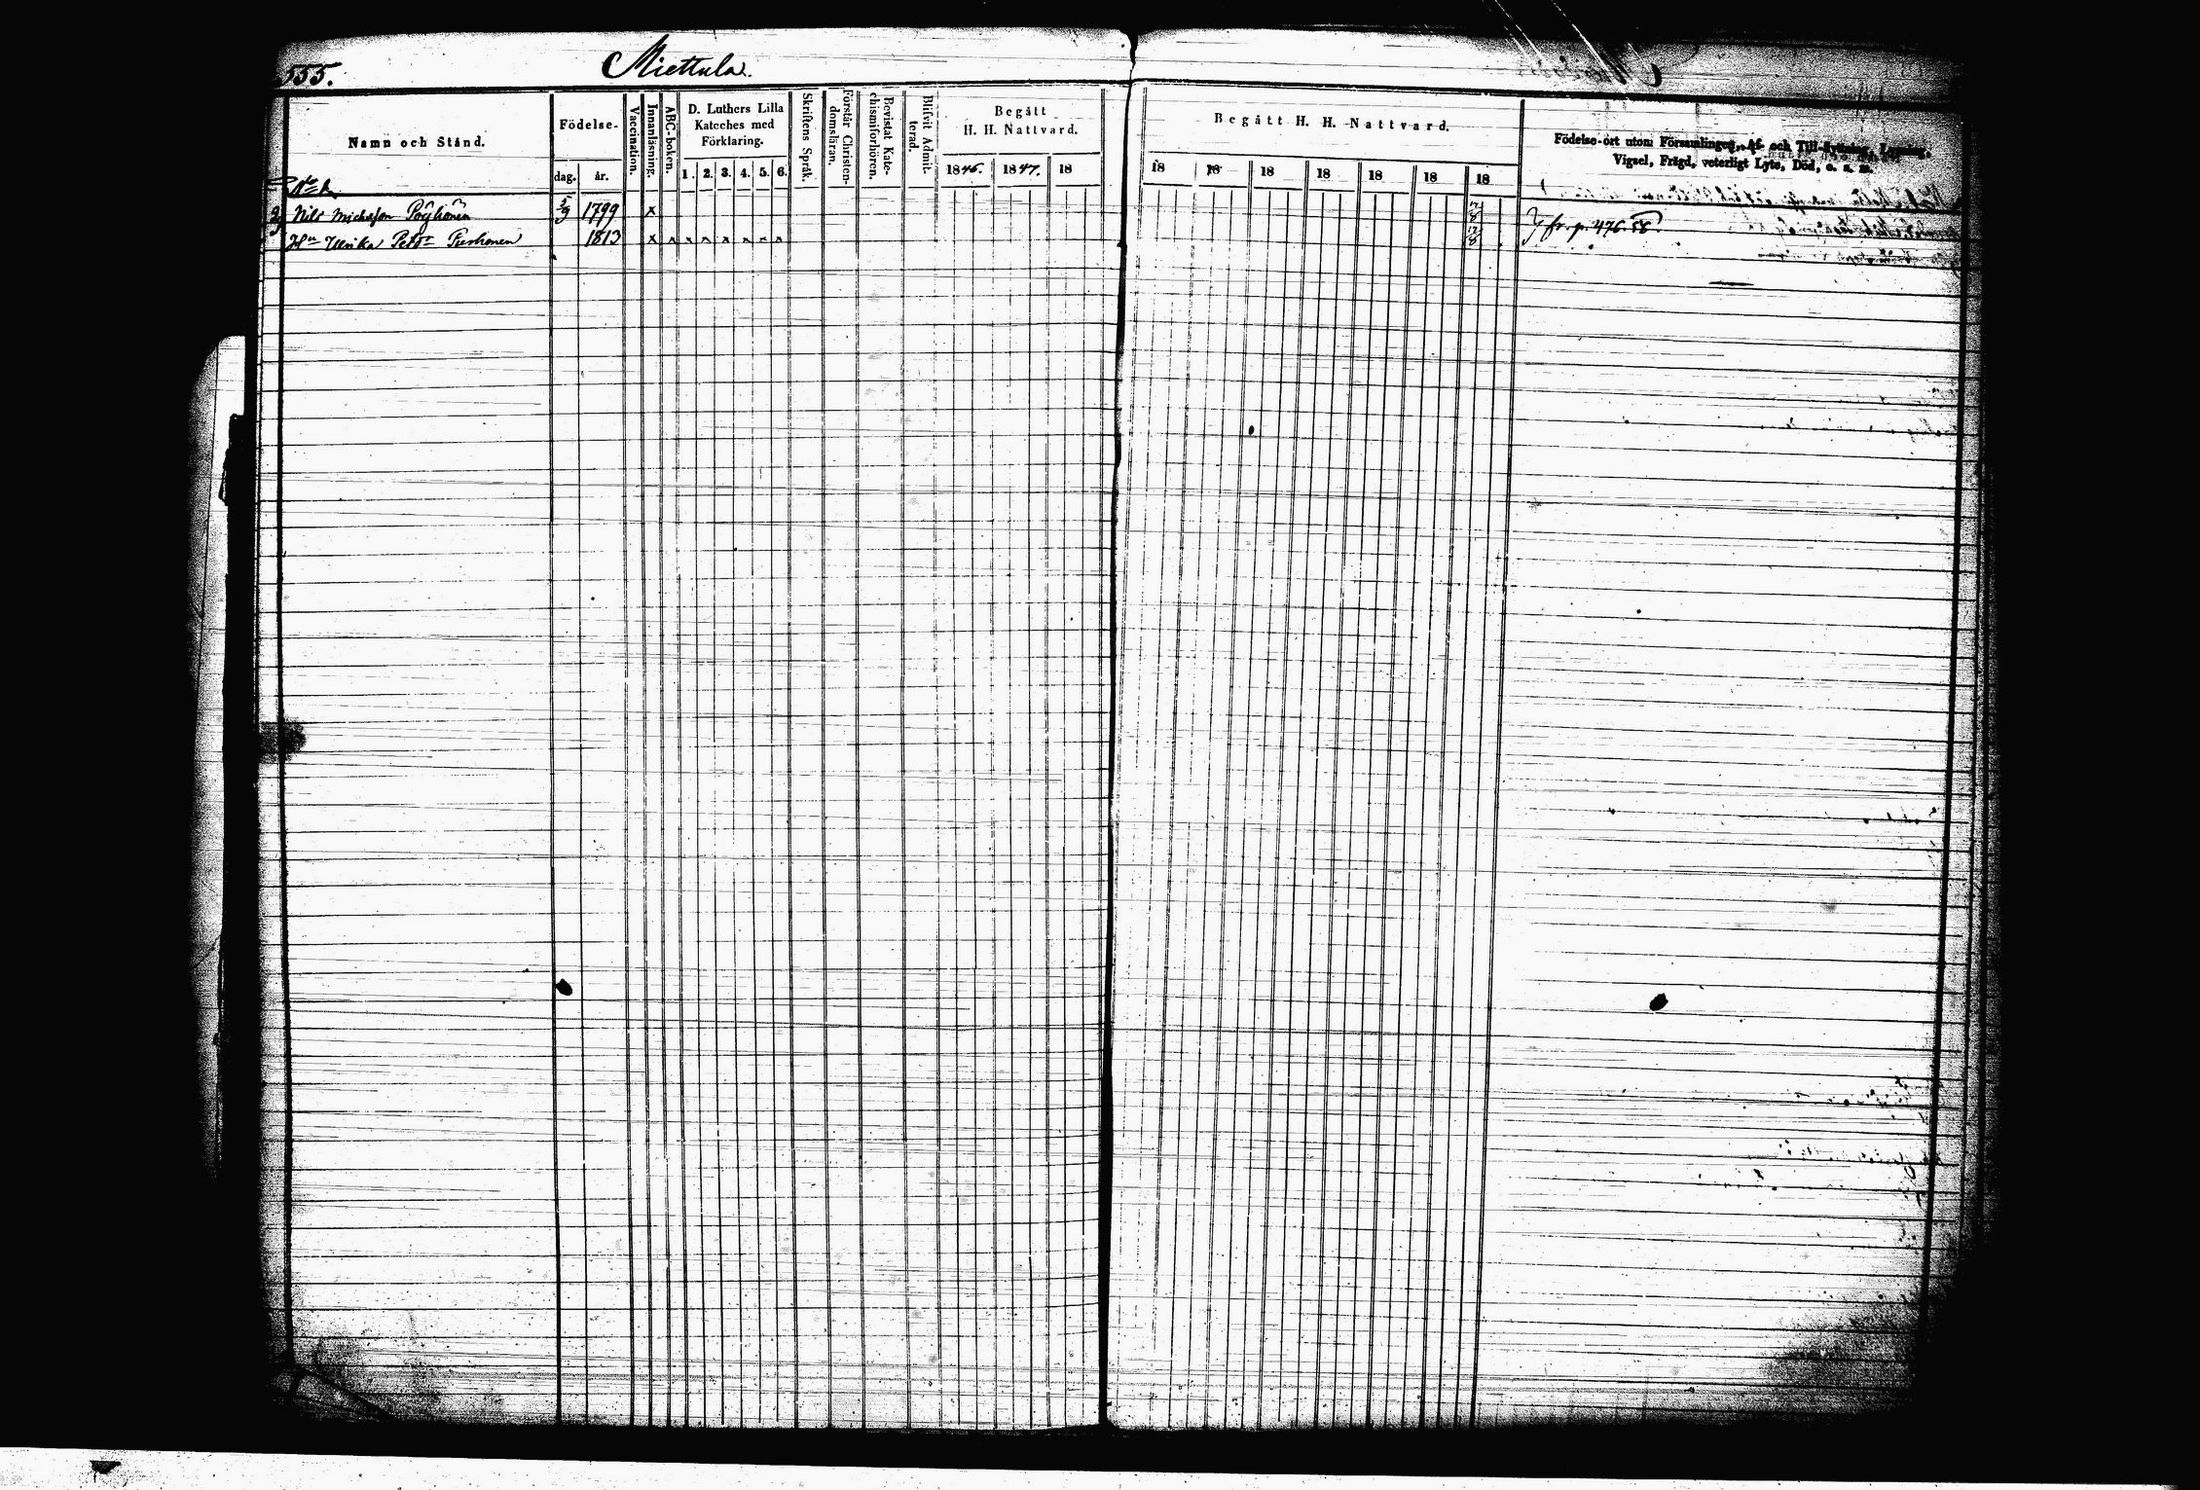 555.
Miettula.
Namn och Stånd.
Födelse-
dag.
år.
Vaccination.
Innanläsning.
ABC-boken.
D. Luthers Lilla
Kateches med
Förklaring.
1. 2. 3. 4. 5. 6.
Skriftens Språk.
Förstår Christen-
domsläran.
Bevistat Kate-
chismiförhören.
Blifvit Admit-
terad.
Begått
H. H. Nattvard.
1846. 1847. 18
Begått H. H. Nattvard.
18 18 18 18 18 18 18
Födelse-ort utom Församlingen, Af- och Till-flyttning, Lysning,
Vigsel, Frägd, veterligt Lyte, Död, o. s. m.
2 Nils Michelson Pöyhönen 5/9 1799 x
Hu Ulrika Petsdr 1813 x x x x x x x x
fr. p. 476. 58.